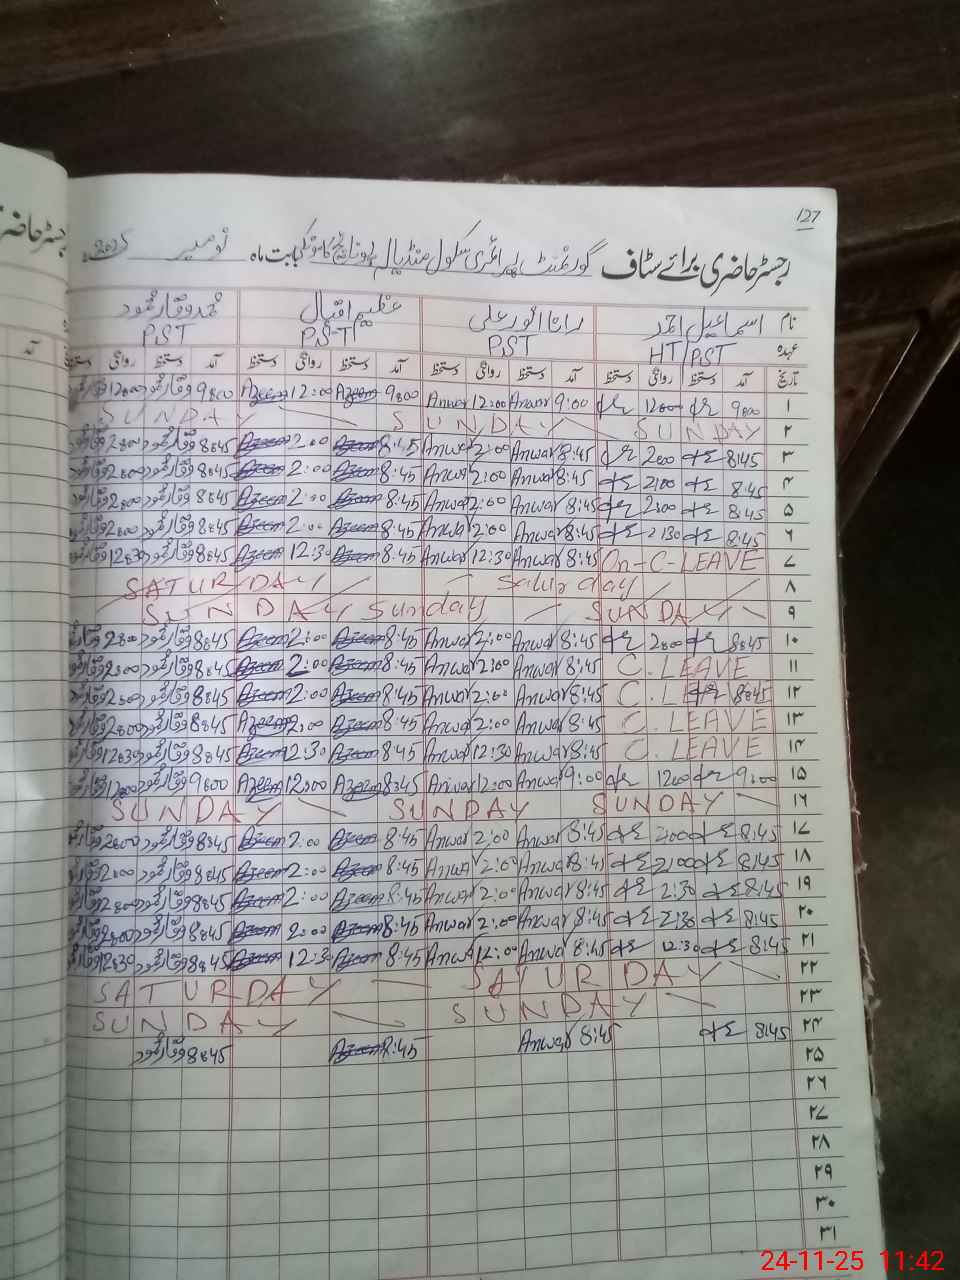 127
رجسٹر حاضری برائے سٹاف گورنمنٹ پرائمری سکول منڈیالہ بابت ماہ نومبر 2025ء
نام اسماعیل احمد رانا انور علی عظیم اقبال محمد وقار محمود
عہدہ HT/PST PST PST PST
تاریخ آمد دستخط روانگی دستخط آمد دستخط روانگی دستخط آمد دستخط روانگی دستخط آمد دستخط روانگی دستخط
۱ 9:00 12:00 9:00 Anwar 12:00 Anwar 9:00 Azeem 12:00 Azeem 9:00 وقار محمود 12:00
۲ SUNDAY SUNDAY SUNDAY
۳ 8:45 2:00 8:45 Anwar 2:00 Anwar 8:45 Azeem 2:00 Azeem 8:45 وقار محمود 2:00
۴ 8:45 2:00 8:45 Anwar 2:00 Anwar 8:45 Azeem 2:00 Azeem 8:45 وقار محمود 2:00
۵ 8:45 2:00 8:45 Anwar 2:00 Anwar 8:45 Azeem 2:00 Azeem 8:45 وقار محمود 2:00
۶ 8:45 2:30 8:45 Anwar 2:00 Anwar 8:45 Azeem 2:00 Azeem 8:45 وقار محمود 2:00
۷ On-C-LEAVE 8:45 Anwar 12:30 Anwar 8:45 Azeem 12:30 Azeem 8:45 وقار محمود 12:30
۸ Saturday SATURDAY
۹ SUNDAY Sunday SUNDAY
۱۰ 8:45 2:00 8:45 Anwar 2:00 Anwar 8:45 Azeem 2:00 Azeem 8:45 وقار محمود 2:00
۱۱ C.LEAVE 8:45 Anwar 2:00 Anwar 8:45 Azeem 2:00 Azeem 8:45 وقار محمود 2:00
۱۲ 8:45 C.LE 8:45 Anwar 2:00 Anwar 8:45 Azeem 2:00 Azeem 8:45 وقار محمود 2:00
۱۳ C.LEAVE 8:45 Anwar 2:00 Anwar 8:45 Azeem 2:00 Azeem 8:45 وقار محمود 2:00
۱۴ C.LEAVE 8:45 Anwar 12:30 Anwar 8:45 Azeem 12:30 Azeem 8:45 وقار محمود 12:30
۱۵ 9:00 12:00 9:00 Anwar 12:00 Anwar 8:45 Azeem 12:00 Azeem 9:00 وقار محمود 12:00
۱۶ SUNDAY SUNDAY SUNDAY
۱۷ 8:45 2:00 8:45 Anwar 2:00 Anwar 8:45 Azeem 2:00 Azeem 8:45 وقار محمود 2:00
۱۸ 8:45 2:00 8:45 Anwar 2:00 Anwar 8:45 Azeem 2:00 Azeem 8:45 وقار محمود 2:00
۱۹ 8:45 2:30 8:45 Anwar 2:00 Anwar 8:45 Azeem 2:00 Azeem 8:45 وقار محمود 2:00
۲۰ 8:45 2:30 8:45 Anwar 2:00 Anwar 8:45 Azeem 2:00 Azeem 8:45 وقار محمود 2:00
۲۱ 8:45 12:30 8:45 Anwar 12:00 Anwar 8:45 Azeem 12:30 Azeem 8:45 وقار محمود 12:30
۲۲ SATURDAY SATURDAY
۲۳ SUNDAY SUNDAY
۲۴ 8:45 8:45 Anwar 8:45 Azeem 8:45 وقار محمود
۲۵
۲۶
۲۷
۲۸
۲۹
۳۰
۳۱
24-11-25 11:42